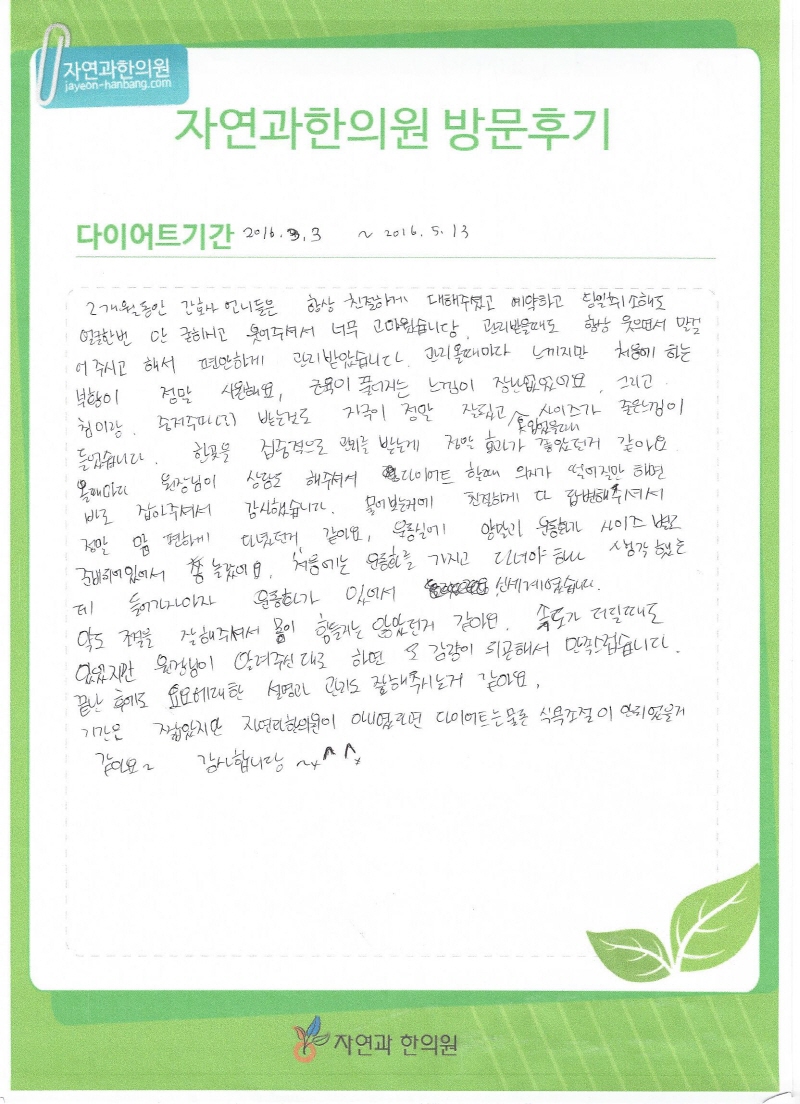 자연과한의원
jayeon-hanbang.com
자연과한의원 방문후기
다이어트기간 2016. 3. 3 ~ 2016. 5. 13
2개월동안 간호사 언니들은 항상 친절하게 대해주셨고 예약하고 당일취소해도
얼굴한번 안 굳히시고 웃어주셔서 너무 고마웠습니당. 관리받을때도 항상 웃으면서 말걸
어주시고 해서 편안하게 관리받았습니다. 관리올때마다 느끼지만 처음에 하는
부항이 정말 시원해요, 근육이 풀어지는 느낌이 장난없었어요. 그리고
침이랑, 중저주파(?) 받는것도 자극이 정말 잘됬고 사이즈가 줄은느낌이
들었습니다. 한곳을 집중적으로 관리를 받는게 정말 효과가 좋았던거 같아요.
올때마다 원장님이 상담도 해주셔서 다이어트 할때 의지가 떨어질만 하면
바로 잡아주셔서 감사했습니다. 물어보는거에 친절하게 다 답변해주셔서
정말 맘 편하게 다녔던거 같아요, 운동실에 양말과 운동화가 사이즈 별로
준비되어있어서 좀 놀랐어요, 처음에는 운동화를 가지고 다녀야 하나 생각했는
데 들어가자마자 운동화가 있어서 신세계였습니다.
약도 조절을 잘해주셔서 몸이 힘들지는 않았던거 같아요. 속도가 더딜때도
있었지만 원장님이 알려주신 대로 하면 또 감량이 되곤해서 만족스럽습니다.
끝난 후에도 요요에대한 설명과 관리도 잘해주시는거 같아요.
기간은 짧았지만 자연과한의원이 아니였더라면 다이어트는 물론 식욕조절이 안되었을거
같아요~ 감사합니당 ~^^
자연과 한의원